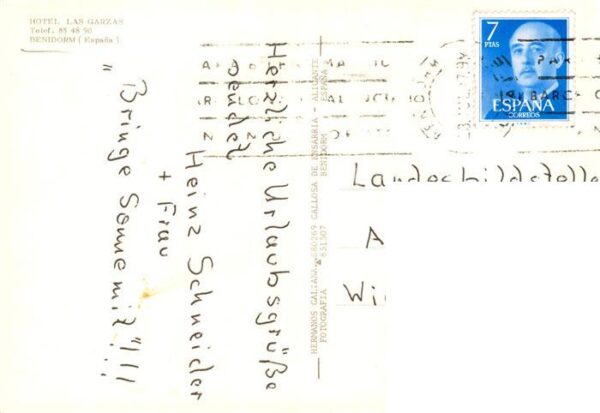 HOTEL LAS GARZAS
Telef. 85 48 50
BENIDORM (España)
Herzliche Urlaubsgrüße
sendet
Heinz Schneider
+ Frau
" Bringe Sonne mit "!!!
HERMANOS GALIANA - CALLOSA DE ENSARRIA - ALICANTE
FOTOGRAFIA BENIDORM ESPAÑA
7
PTAS
ESPAÑA
CORREOS
Landesbildstelle
A
Wi